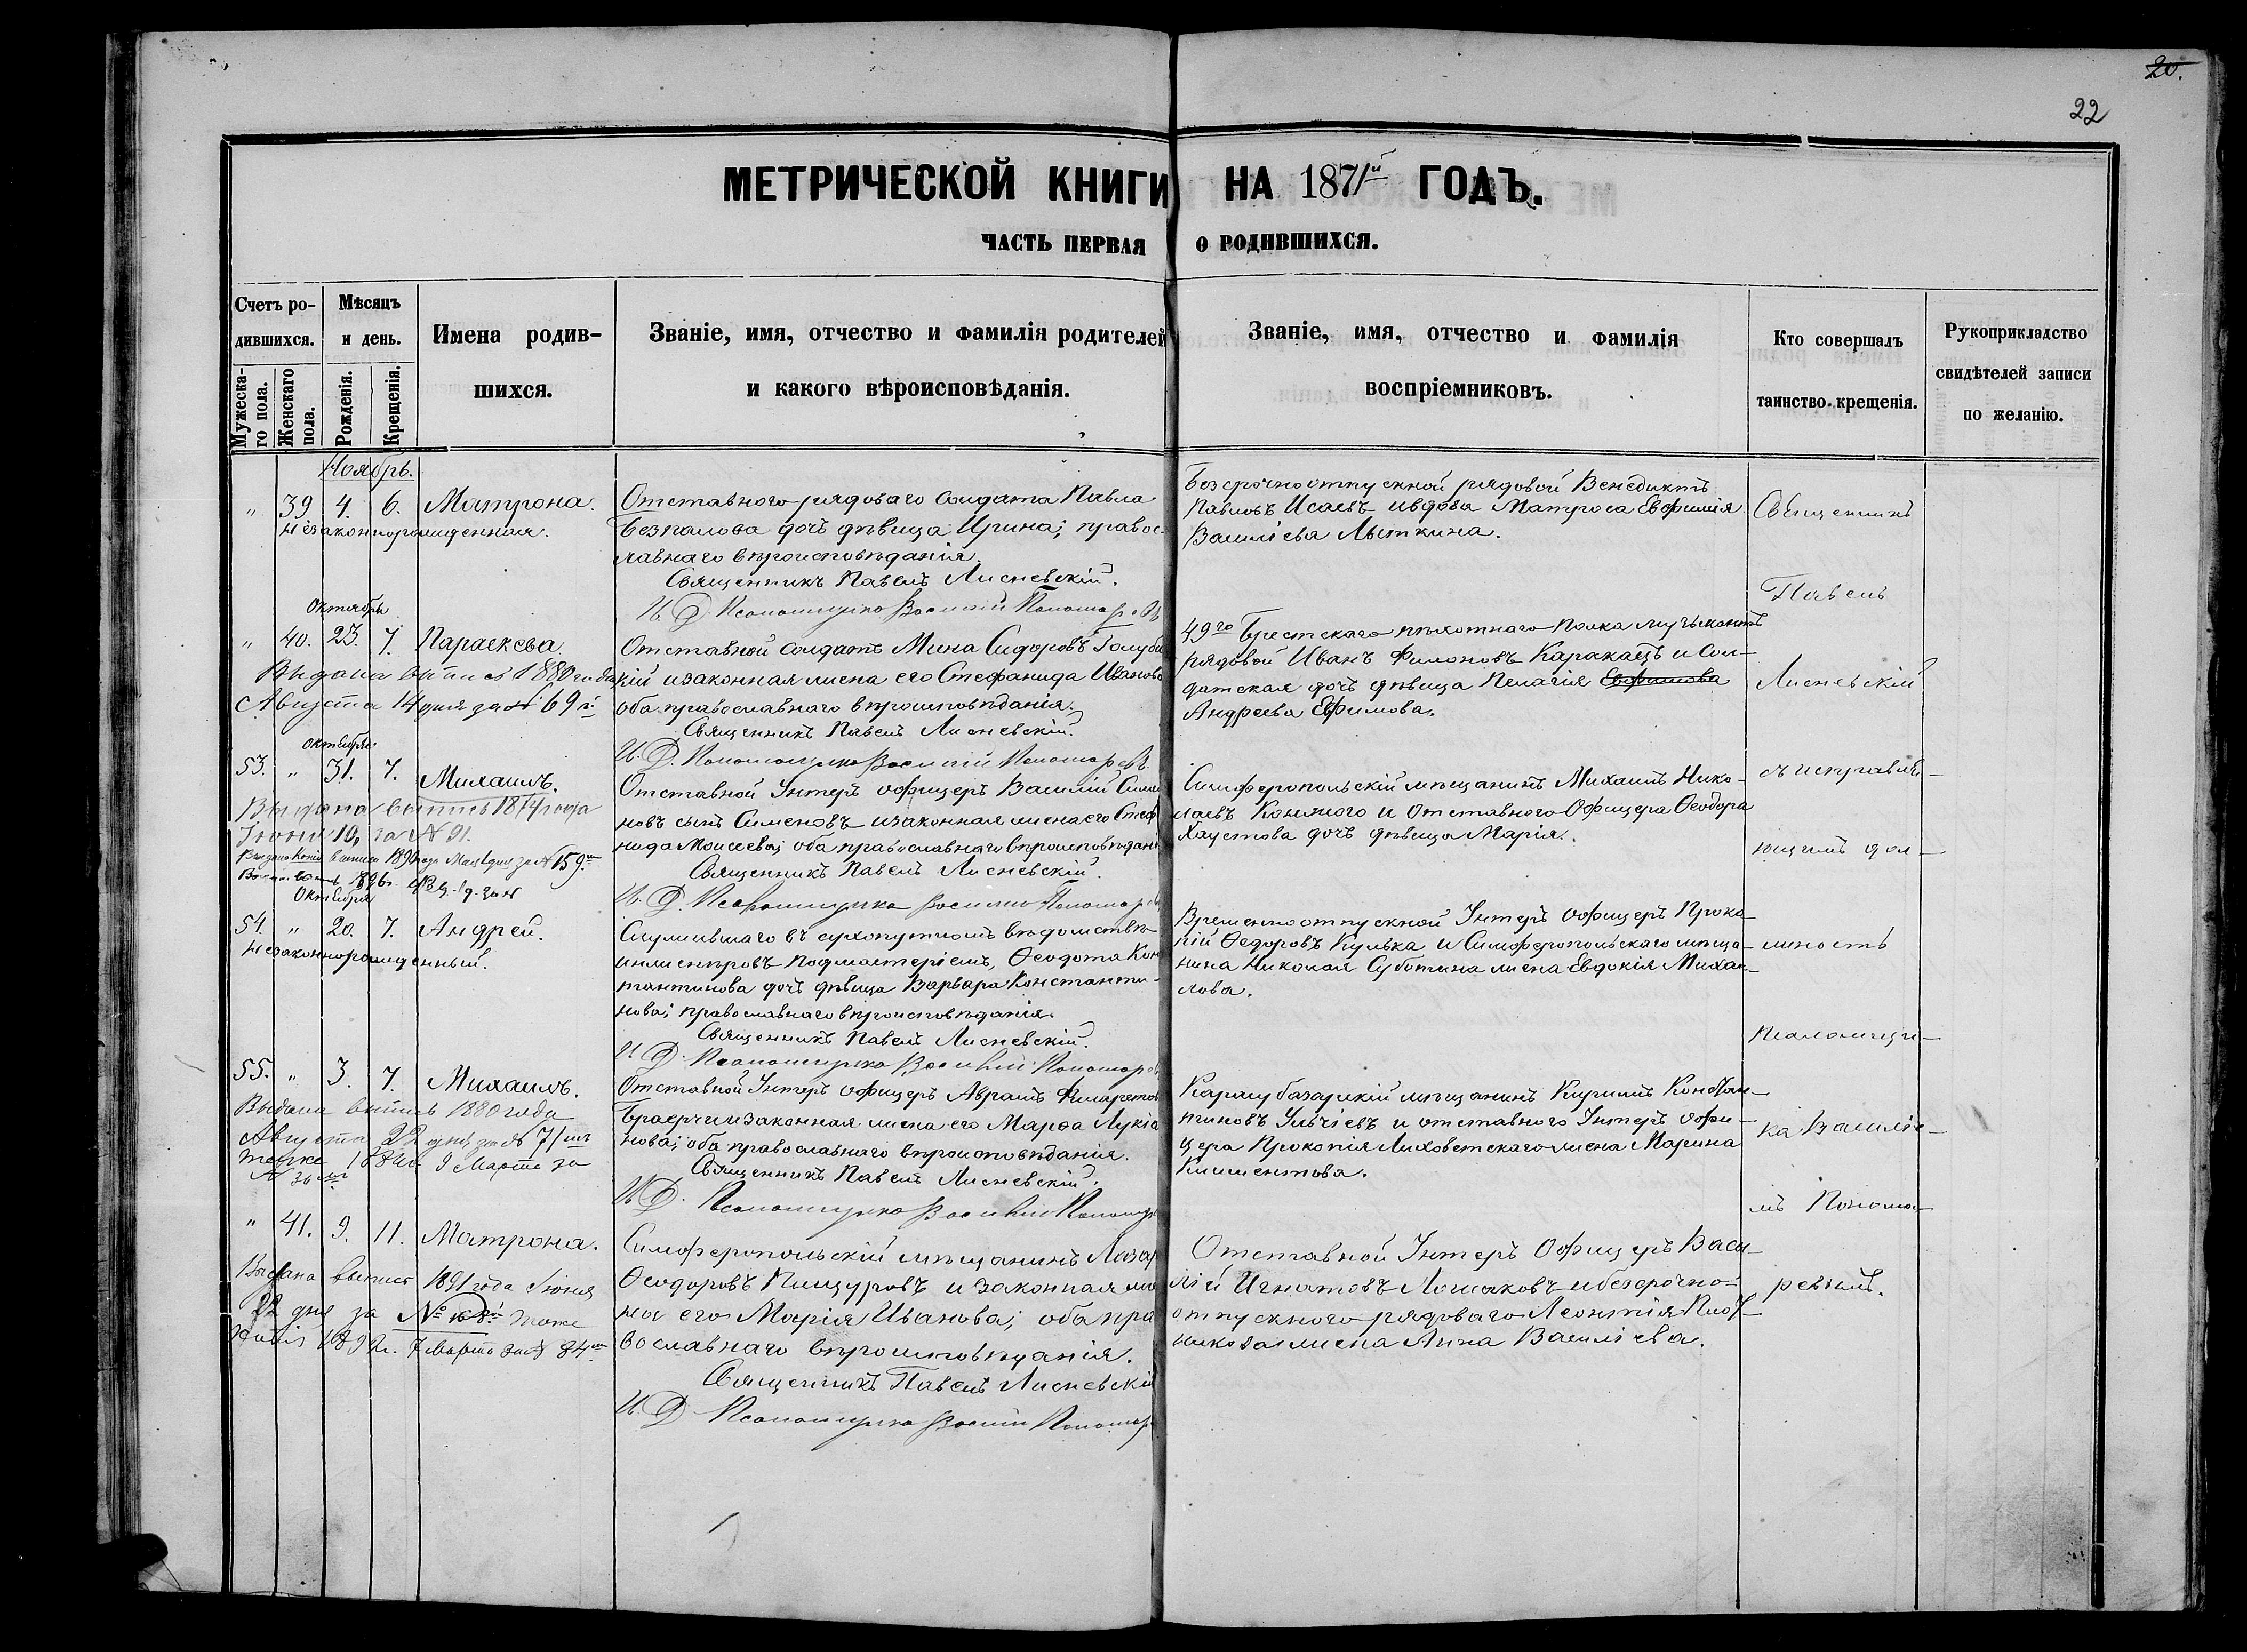 20.
22
МЕТРИЧЕСКОЙ КНИГИ НА 1871й ГОДЪ.
ЧАСТЬ ПЕРВАЯ О РОДИВШИХСЯ.
Счетъ ро-
дившихся.
Мужеска-
го пола.
Женскаго
пола.
Мѣсяцъ
и день.
Рожденія.
Крещенія.
Имена родив-
шихся.
Званіе, имя, отчество и фамилія родителей
и какого вѣроисповѣданія.
Званіе, имя, отчество и фамилія
воспріемниковъ.
Кто совершалъ
таинство крещенія.
Рукоприкладство
свидѣтелей записи
по желанію.
Ноябрь.
" 39 4. 6. Матрона.
Незаконнорожденная.
Отставного рядоваго солдата Павла
Безпалова дочь дѣвица Ирина; правос-
лавнаго вѣроисповѣданія.
Священникъ Павелъ Лисневскій.
И. Д. Псаломщика Василій Пономаревъ
Безсрочноотпускной рядовой Венедиктъ
Павловъ Исаевъ и вдова Матроса Евфимія
Василіева Лыткина.
Октября
" 40. 23. 7. Параскева.
Выдана выпись 1880 года
Августа 14 дня за № 69й
Отставной солдатъ Мина Сидоровъ Голуб
кій и законная жена его Стефанида Иванов
оба православнаго вѣроисповѣданія.
Священникъ Павелъ Лисневскій.
И. Д. Псаломщика Василій Пономаревъ.
49го Брестскаго пѣхотнаго полка музыкантъ
рядовой Иванъ Филоновъ Каракацъ и Сол-
датская дочь дѣвица Пелагія Евфимова
Андреева Евфимова.
Октября
53. " 31. 7. Михаилъ.
Выдана выпись 1874 года
Іюня 10, за № 91.
Отставной Унтеръ офицеръ Василій Симо
новъ сынъ Сименовъ и законная жена его Стеф
нида Моисеева; оба православнаго вѣроисповѣдан
Священникъ Павелъ Лисневскій.
И. Д. Псаломщика Василій Пономарев
Симферопольскій мѣщанинъ Михаилъ Нико-
лаевъ и Отставного Офицера Ѳеодора
Хаустова дочь дѣвица Марія.
Октября
54. " 20. 7. Андрей.
Незаконнорожденный.
Служившаго въ сухопутномъ вѣдомствѣ
инженеровъ подмастеріемъ, Ѳеодота Конс
тантинова дочь дѣвица Варвара Константи-
нова; православнаго вѣроисповѣданія.
Священникъ Павелъ Лисневскій.
И. Д. Псаломщика Василій Пономарев
Временноотпускной Унтеръ офицеръ Проко-
пій Ѳедоровъ Кулька и Симферопольскаго мѣща-
нина Николая Суботина жена Евдокія Михаи-
лова.
55. " 3. 7. Михаилъ.
Выдана выпись 1880 года
Августа 22 дня за № 71
Отставной Унтеръ офицеръ Авраамъ Филаретов
и законная жена его Марѳа Лукіа
нова; оба православнаго вѣроисповѣданія.
Священникъ Павелъ Лисневскій.
И. Д. Псаломщика Василій Пономар
Карасубазарскій мѣщанинъ Кирилъ Констан-
тиновъ и отставного Унтеръ офи-
цера Прокопія Лиховетскаго жена Марина
Климентова.
" 41. 9. 11. Матрона.
Выдана выпись 1891 года Іюня
22 дня за № тоже
1892 г. 7 Марта за № 84
Симферопольскій мѣщанинъ Лазар
Ѳеодоровъ Пищуровъ и законная же
на его Марія Иванова; оба пра
вославнаго вѣроисповѣданія.
Священникъ Павелъ Лисневскій
И. Д. Псаломщика Василій Пономар
Отставной Унтеръ Офицеръ Васи-
лій Игнатовъ Лошаковъ и безсрочно-
отпускного рядоваго Леонтія
жена Анна Василіева.
Священникъ
Павелъ
Лисневскій
съ исправля-
ющимъ дол-
жность
псаломщи-
ка Василіе-
мъ Понома-
ревымъ.